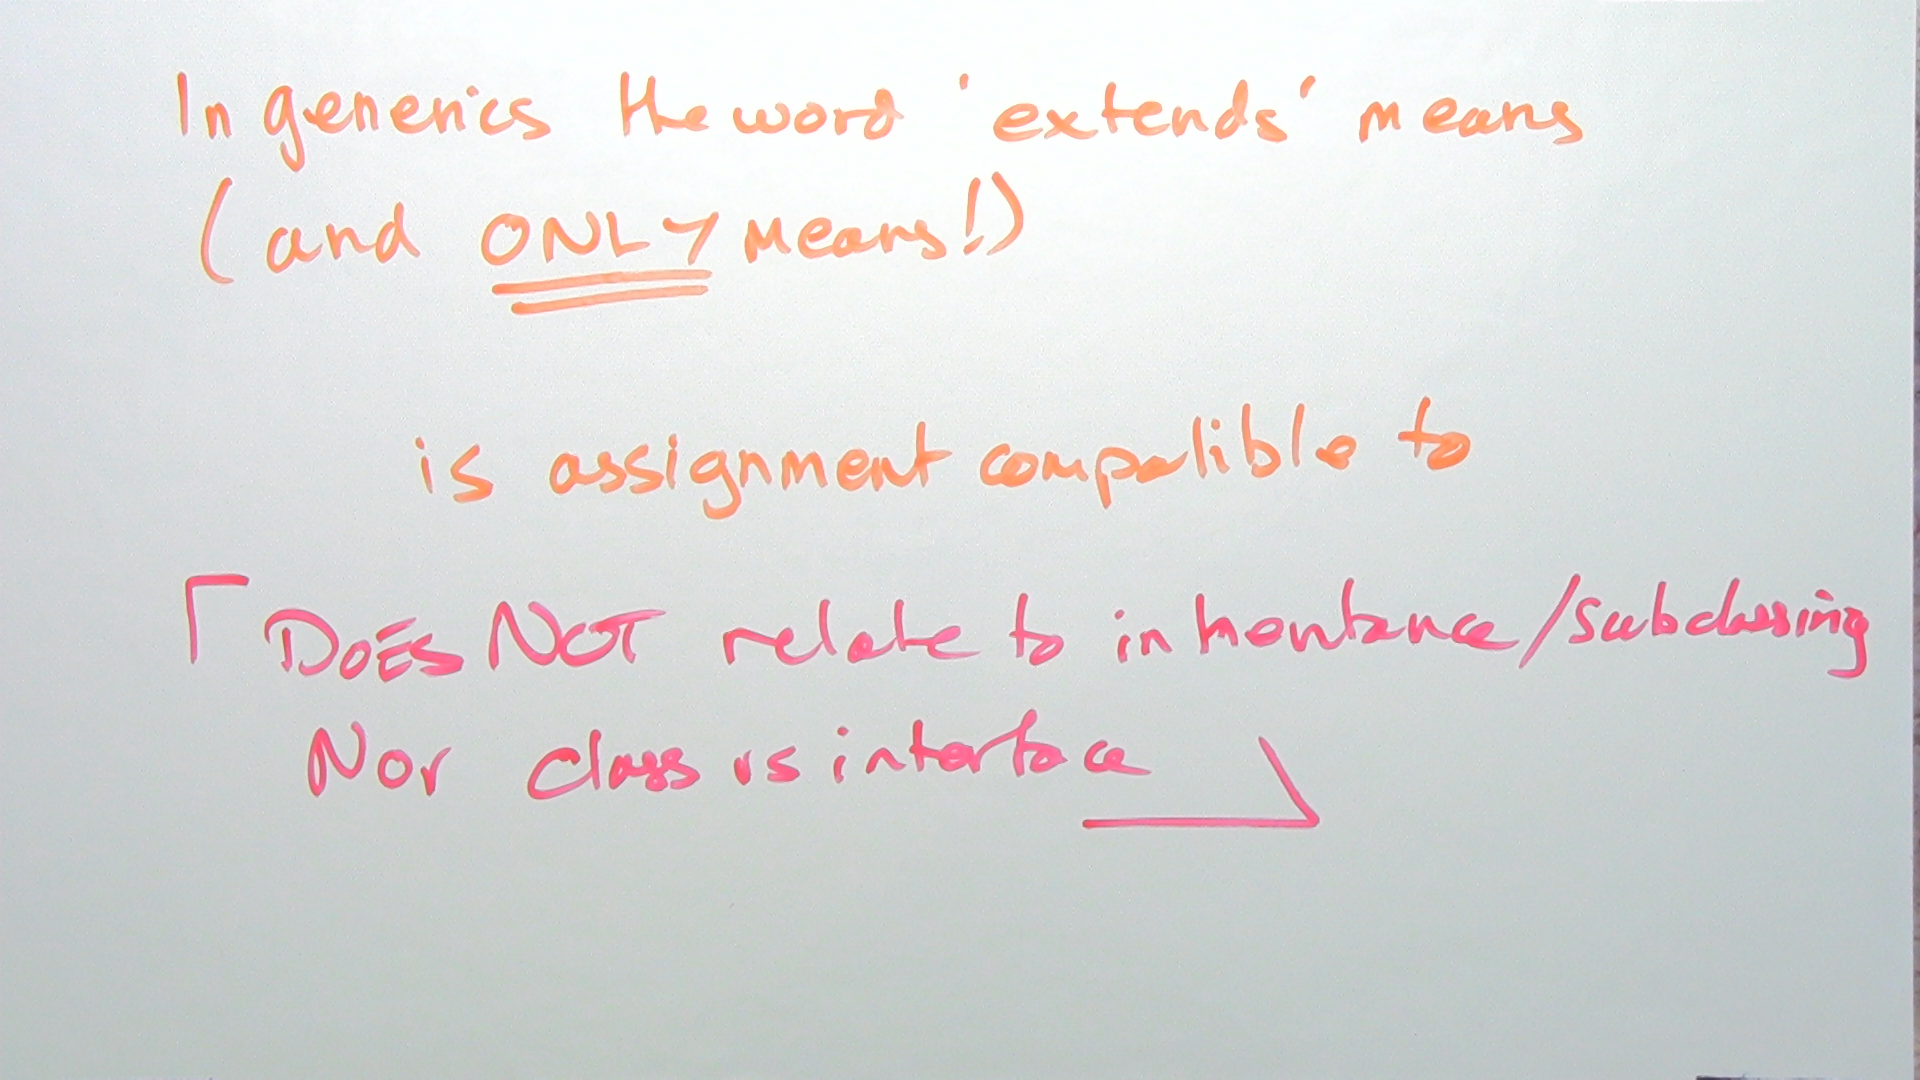 In generics the word 'extends' means
(and ONLY means!)
is assignment compatible to
DOES NOT relate to inheritance/subclassing
Nor class vs interface